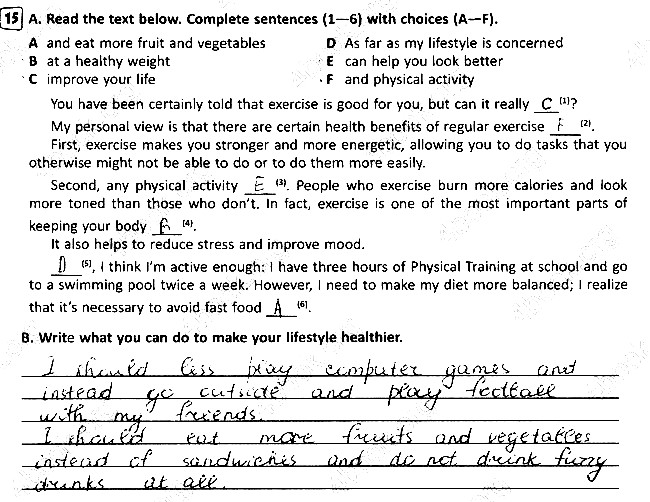 15 A. Read the text below. Complete sentences (1—6) with choices (A—F).
A and eat more fruit and vegetables D As far as my lifestyle is concerned
B at a healthy weight E can help you look better
C improve your life F and physical activity
You have been certainly told that exercise is good for you, but can it really C (1)?
My personal view is that there are certain health benefits of regular exercise F (2).
First, exercise makes you stronger and more energetic, allowing you to do tasks that you
otherwise might not be able to do or to do them more easily.
Second, any physical activity E (3). People who exercise burn more calories and look
more toned than those who don't. In fact, exercise is one of the most important parts of
keeping your body (4).
It also helps to reduce stress and improve mood.
D (5), I think I'm active enough: I have three hours of Physical Training at school and go
to a swimming pool twice a week. However, I need to make my diet more balanced; I realize
that it's necessary to avoid fast food A (6).
B. Write what you can do to make your lifestyle healthier.
I should less play computer games and
instead go outside and play football
with my friends.
I should eat more fruits and vegetables
instead of sandwiches and do not drink fuzzy
drinks at all.